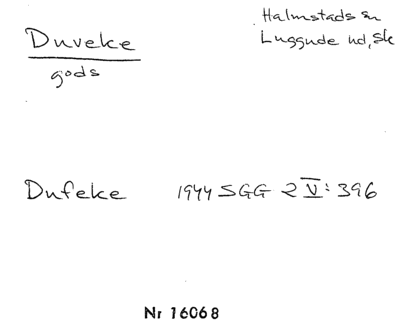 Duveke
gods
Halmstads sn
Luggude hd, Sk
Dufeke 1944 SGG 2 V: 396
Nr 16068